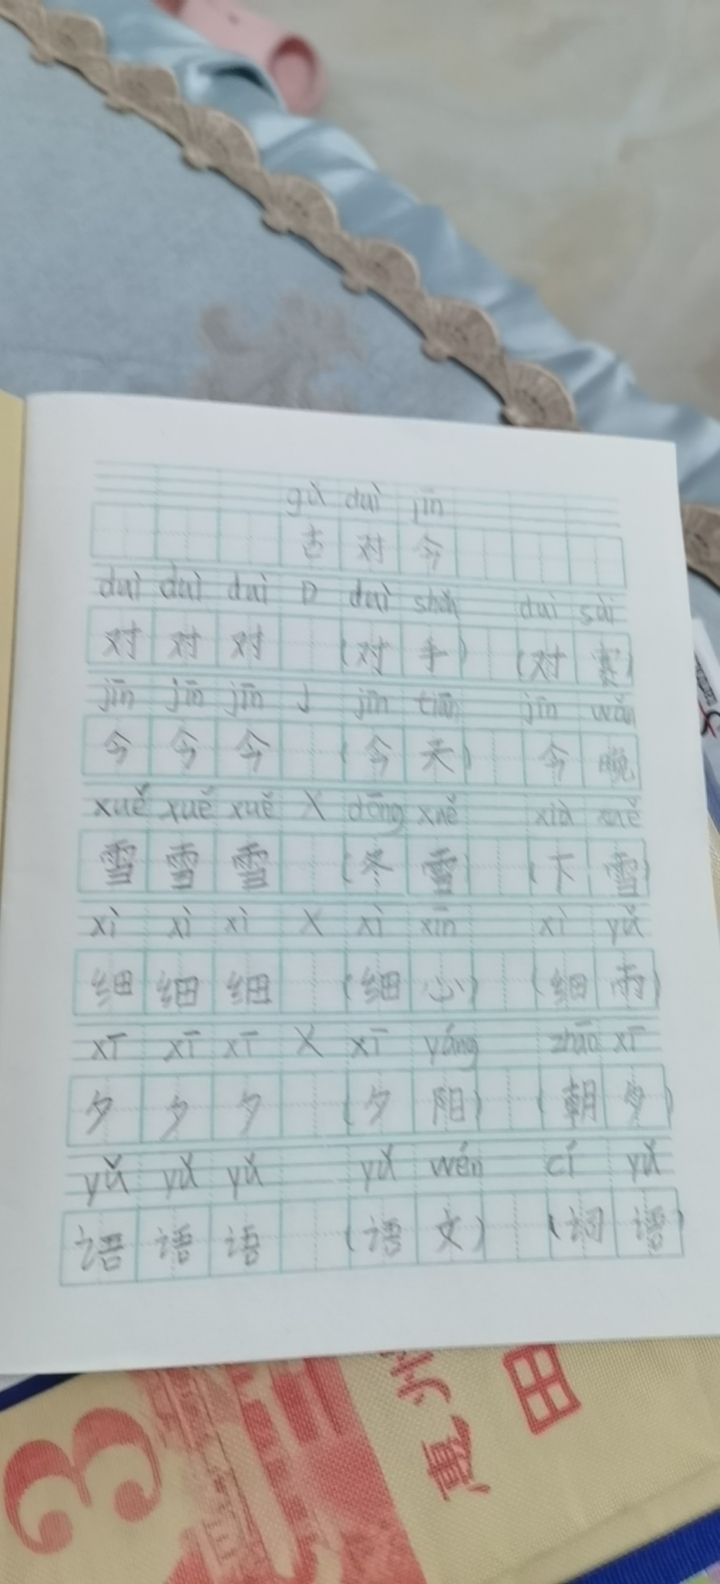 gǔ duì jīn
古 对 今
duì duì duì D duì shǒu duì sài
对 对 对 (对 手) (对 赛)
jīn jīn jīn J jīn tiān jīn wǎn
今 今 今 (今 天) 今 晚
xuě xuě xuě X dōng xuě xià xuě
雪 雪 雪 (冬 雪 (下 雪)
xì xì xì X xì xīn xì yǔ
细 细 细 (细 心) (细 雨)
xī xī xī X xī yáng zhāo xī
夕 夕 夕 (夕 阳) (朝 夕)
yǔ yǔ yǔ yǔ wén cí yǔ
语 语 语 (语 文) (词 语)
3
惠州
田